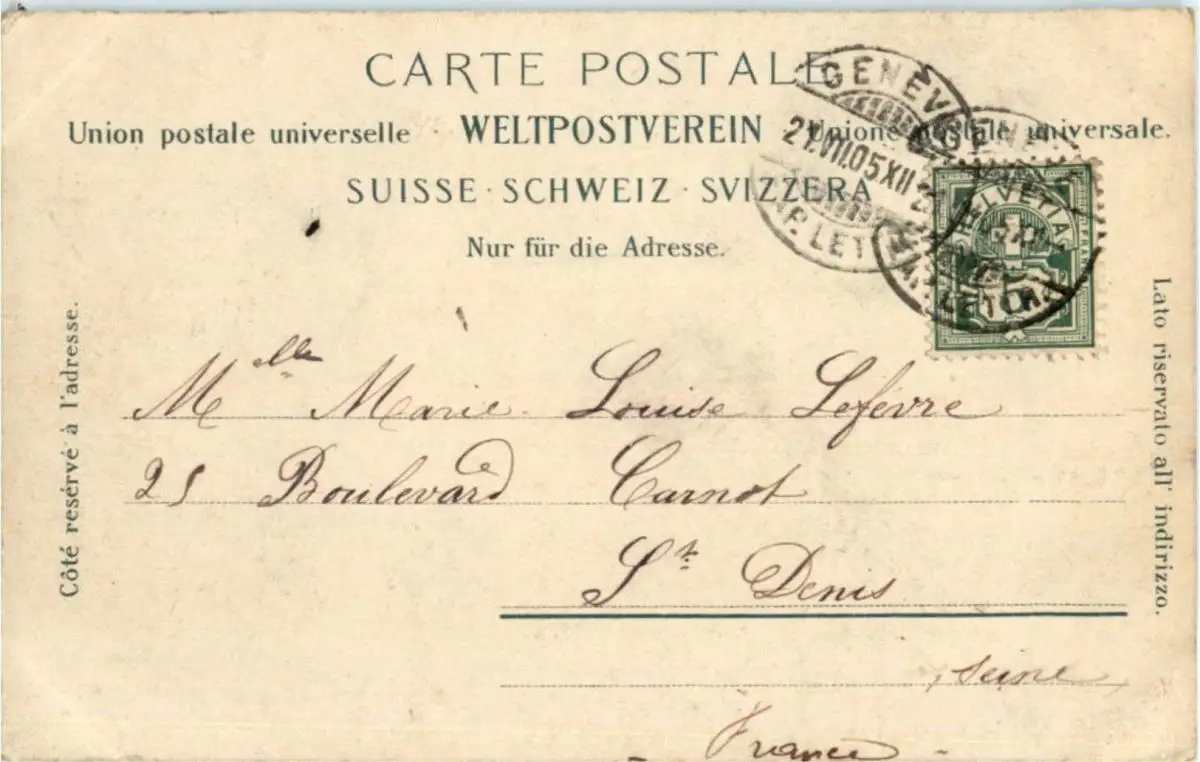 CARTE POSTALE
Union postale universelle · WELTPOSTVEREIN · Unione postale universale.
SUISSE · SCHWEIZ · SVIZZERA
Nur für die Adresse.
Côté resérvé à l'adresse.
Lato riservato all' indirizzo.
GENÈV
21.VII.05 XII
EXP. LET
GENÈ
EXP. LETTR.
HELVETIA
FRANCO
Mlle Marie Louise Lefèvre
25 Boulevard Carnot
St Denis
Seine
France